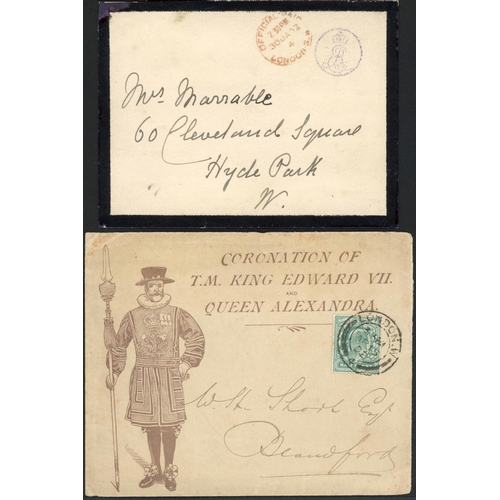 OFFICIAL PAID
7.30PM
30 JA 12
4
LONDON S.W.
Mrs Marrable
60 Cleveland Square
Hyde Park
W.
CORONATION OF
T.M. KING EDWARD VII.
AND
QUEEN ALEXANDRA.
LONDON. W.
W. H. Short Esq
Blandford